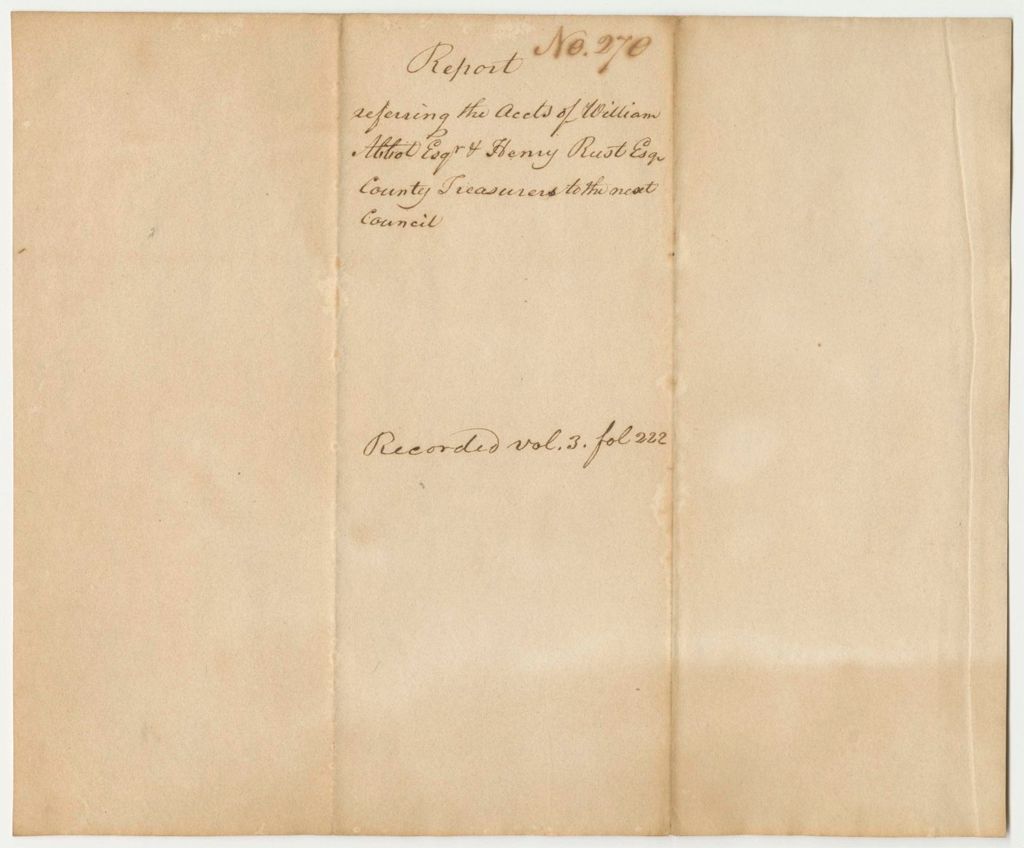 No. 270
Report
referring the Accts of William
Abbot Esqr & Henry Rust Esqr
County Treasurers to the next
Council
Recorded vol. 3. fol 222